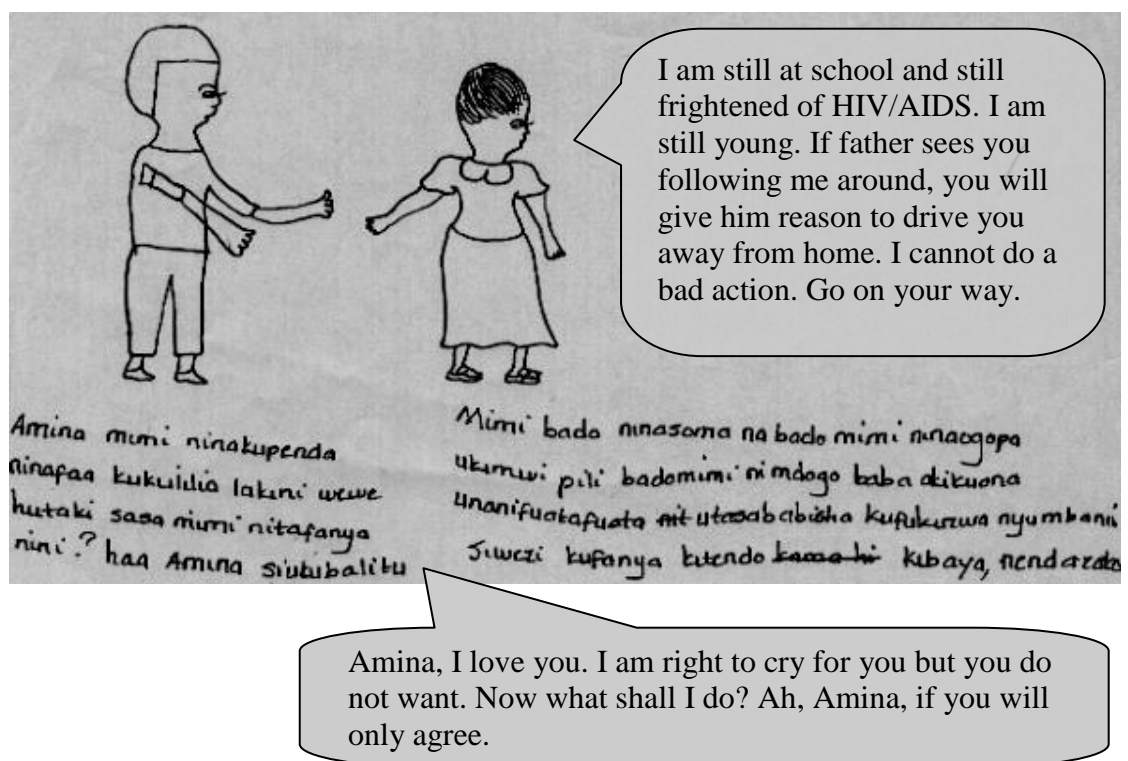 I am still at school and still
frightened of HIV/AIDS. I am
still young. If father sees you
following me around, you will
give him reason to drive you
away from home. I cannot do a
bad action. Go on your way.
Amina mimi ninakupenda
ninafaa kukuililia lakini wewe
hutaki sasa mimi nitafanya
nini? haa Amina
Mimi bado ninasoma na bado mimi ninaogopa
ukimwi pili badomimi ni mdogo baba akikuona
unanifuatafuata utasababisha kufukuzwa nyumbani
siwezi kufanya kitendo kibaya,
Amina, I love you. I am right to cry for you but you do
not want. Now what shall I do? Ah, Amina, if you will
only agree.